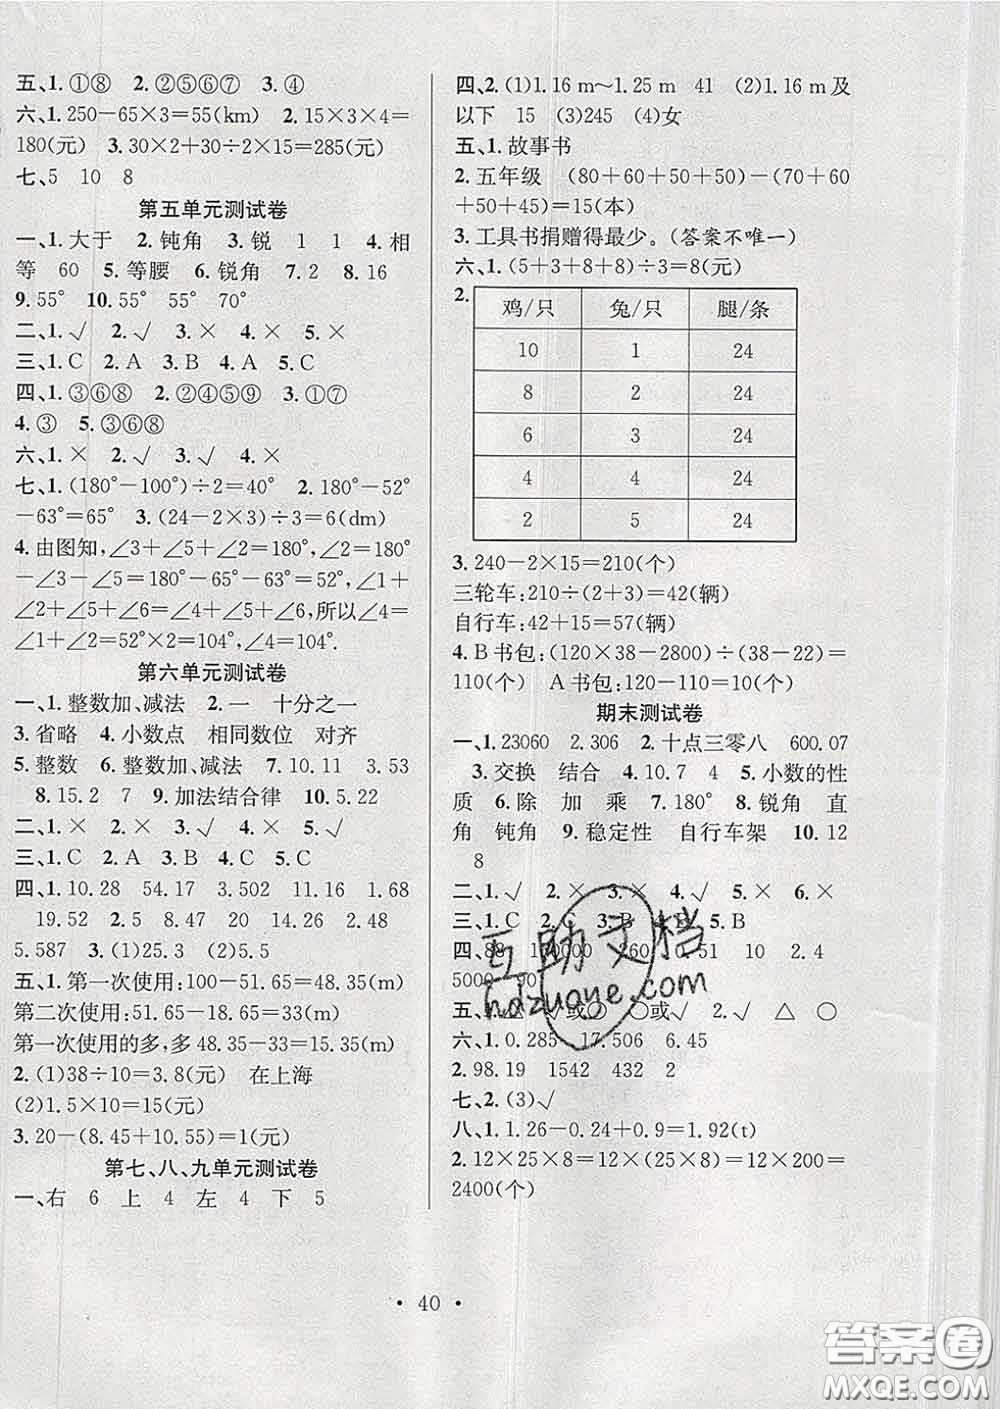 五、1. ①⑧　2. ②⑤⑥⑦　3. ④
六、1. 250－65×3＝55(km)　2. 15×3×4＝
180(元)　3. 30×2＋30÷2×15＝285(元)
七、5　10　8
第五单元测试卷
一、1. 大于　2. 钝角　3. 锐　1　1　4. 相
等　60　5. 等腰　6. 锐角　7. 2　8. 16
9. 55°　10. 55°　55°　70°
二、1. √　2. √　3. ×　4. ×　5. ×
三、1. C　2. A　3. B　4. A　5. C
四、1. ③⑥⑧　2. ②④⑤⑨　3. ①⑦
4. ③　5. ③⑥⑧
六、1. ×　2. √　3. √　4. ×
七、1. (180°－100°)÷2＝40°　2. 180°－52°
－63°＝65°　3. (24－2×3)÷3＝6(dm)
4. 由图知,∠3＋∠5＋∠2＝180°,∠2＝180°
－∠3－∠5＝180°－65°－63°＝52°,∠1＋
∠2＋∠5＋∠6＝∠4＋∠5＋∠6,所以∠4＝
∠1＋∠2＝52°×2＝104°,∠4＝104°.
第六单元测试卷
一、1. 整数加、减法　2. 一　十分之一
3. 省略　4. 小数点　相同数位　对齐
5. 整数　6. 整数加、减法　7. 10.11　3.53
8. 15.2　7　9. 加法结合律　10. 5.22
二、1. ×　2. ×　3. √　4. ×　5. √
三、1. C　2. A　3. C　4. A　5. C
四、1. 10.28　54.17　3.502　11.16　1.87
19.52　2. 5　8.47　20　14.26　2.48
5.587　3. (1)25.3　(2)5.5
五、1. 第一次使用:100－51.65＝48.35(m)
第二次使用:51.65－18.65＝33(m)
第一次使用的多,多48.35－33＝15.35(m)
2. (1)38÷10＝3.8(元)　在上海
(2)1.5×10＝15(元)
3. 20－(8.45＋10.55)＝1(元)
第七、八、九单元测试卷
一、右　6　上　4　左　4　下　5
四、2. (1)1.16 m～1.25 m　41　(2)1.16 m及
以下　15　(3)245　(4)女
五、1. 故事书
2. 五年级　(80＋60＋50＋50)－(70＋60
＋50＋45)＝15(本)
3. 工具书捐赠得最少。(答案不唯一)
六、1. (5＋3＋8＋8)÷3＝8(元)
2.
鸡/只　兔/只　腿/条
10　1　24
8　2　24
6　3　24
4　4　24
2　5　24
3. 240－2×15＝210(个)
三轮车:210÷(2＋3)＝42(辆)
自行车:42＋15＝57(辆)
4. B书包:(120×38－2800)÷(38－22)＝
110(个)　A书包:120－110＝10(个)
期末测试卷
一、1. 23060　2.306　2. 十点三零八　600.07
3. 交换　结合　4. 10.7　4　5. 小数的性
质　6. 除　加　乘　7. 180°　8. 锐角　直
角　钝角　9. 稳定性　自行车架　10. 12
8
二、1. √　2. ×　3. ×　4. √　5. ×　6. ×
三、1. C　2. C　3. B　5. B
四、88　0.51　10　2.4
5000　90
五、1. √或○　○或√　2. √　△　○
六、1. 0.285　17.506　6.45
2. 98.19　1542　432　2
七、2. (3)√
八、1. 1.26－0.24＋0.9＝1.92(t)
2. 12×25×8＝12×(25×8)＝12×200＝
2400(个)
互助文档
hdzuoye.com
· 40 ·
答案圈
MXQE.COM